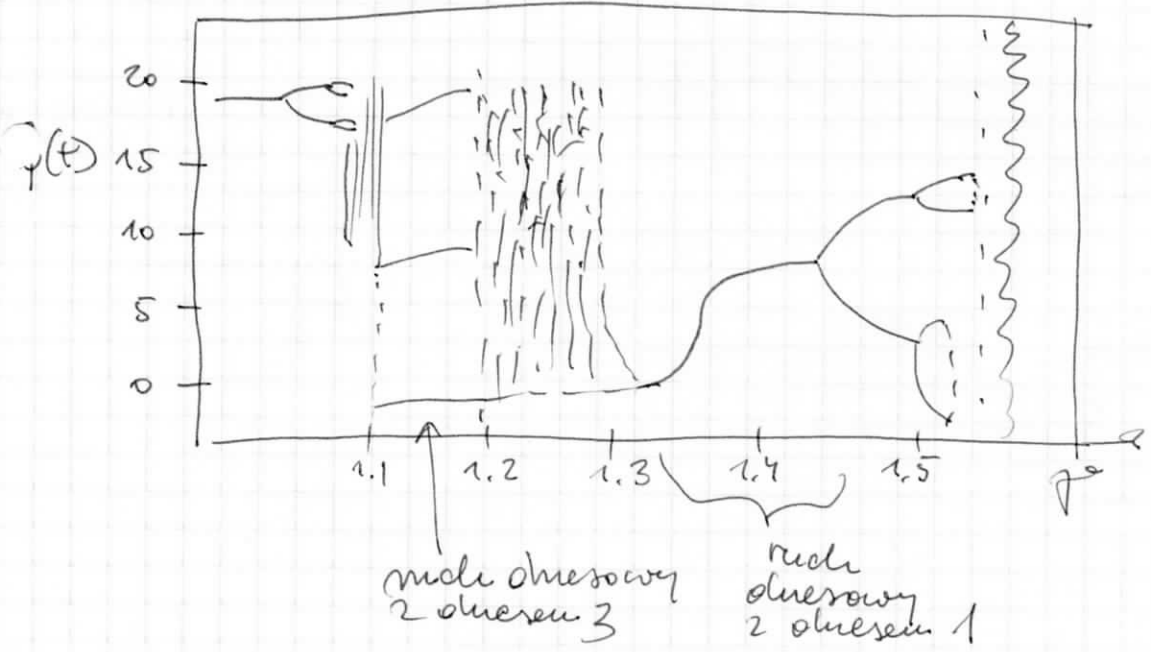 20
(t) 15
10
5
0
1,1 1,2 1,3 1,4 1,5 a
ruch okresowy
z okresem 3
ruch
okresowy
z okresem 1